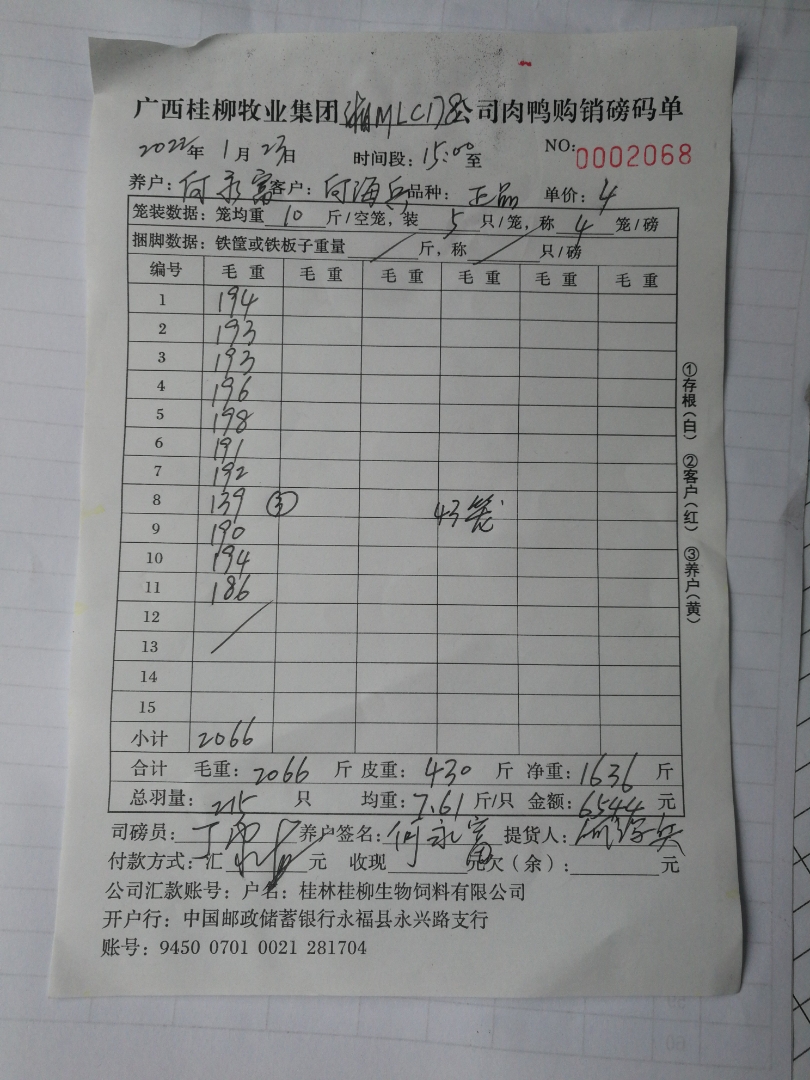 广西桂柳牧业集团湘MLC178公司肉鸭购销磅码单
2022年1月23日 时间段：15:00至 NO:0002068
养户：何永富 客户：何海兵 品种：正品 单价：4
笼装数据：笼均重10斤/空笼，装5只/笼，称4笼/磅
捆脚数据：铁筐或铁板子重量/斤，称/只/磅
编号 毛重 毛重 毛重 毛重 毛重 毛重
1 194
2 193
3 193
4 196
5 198
6 191
7 192
8 139 ③ 43笼
9 190
10 194
11 186
12
13
14
15
小计 2066
合计 毛重：2066斤 皮重：430斤 净重：1636斤
总羽量：215只 均重：7.61斤/只 金额：6544元
司磅员： 养户签名：何永富 提货人：
付款方式：汇 元 收现 元欠（余）： 元
公司汇款账号：户名：桂林桂柳生物饲料有限公司
开户行：中国邮政储蓄银行永福县永兴路支行
账号：9450 0701 0021 281704
①存根（白） ②客户（红） ③养户（黄）